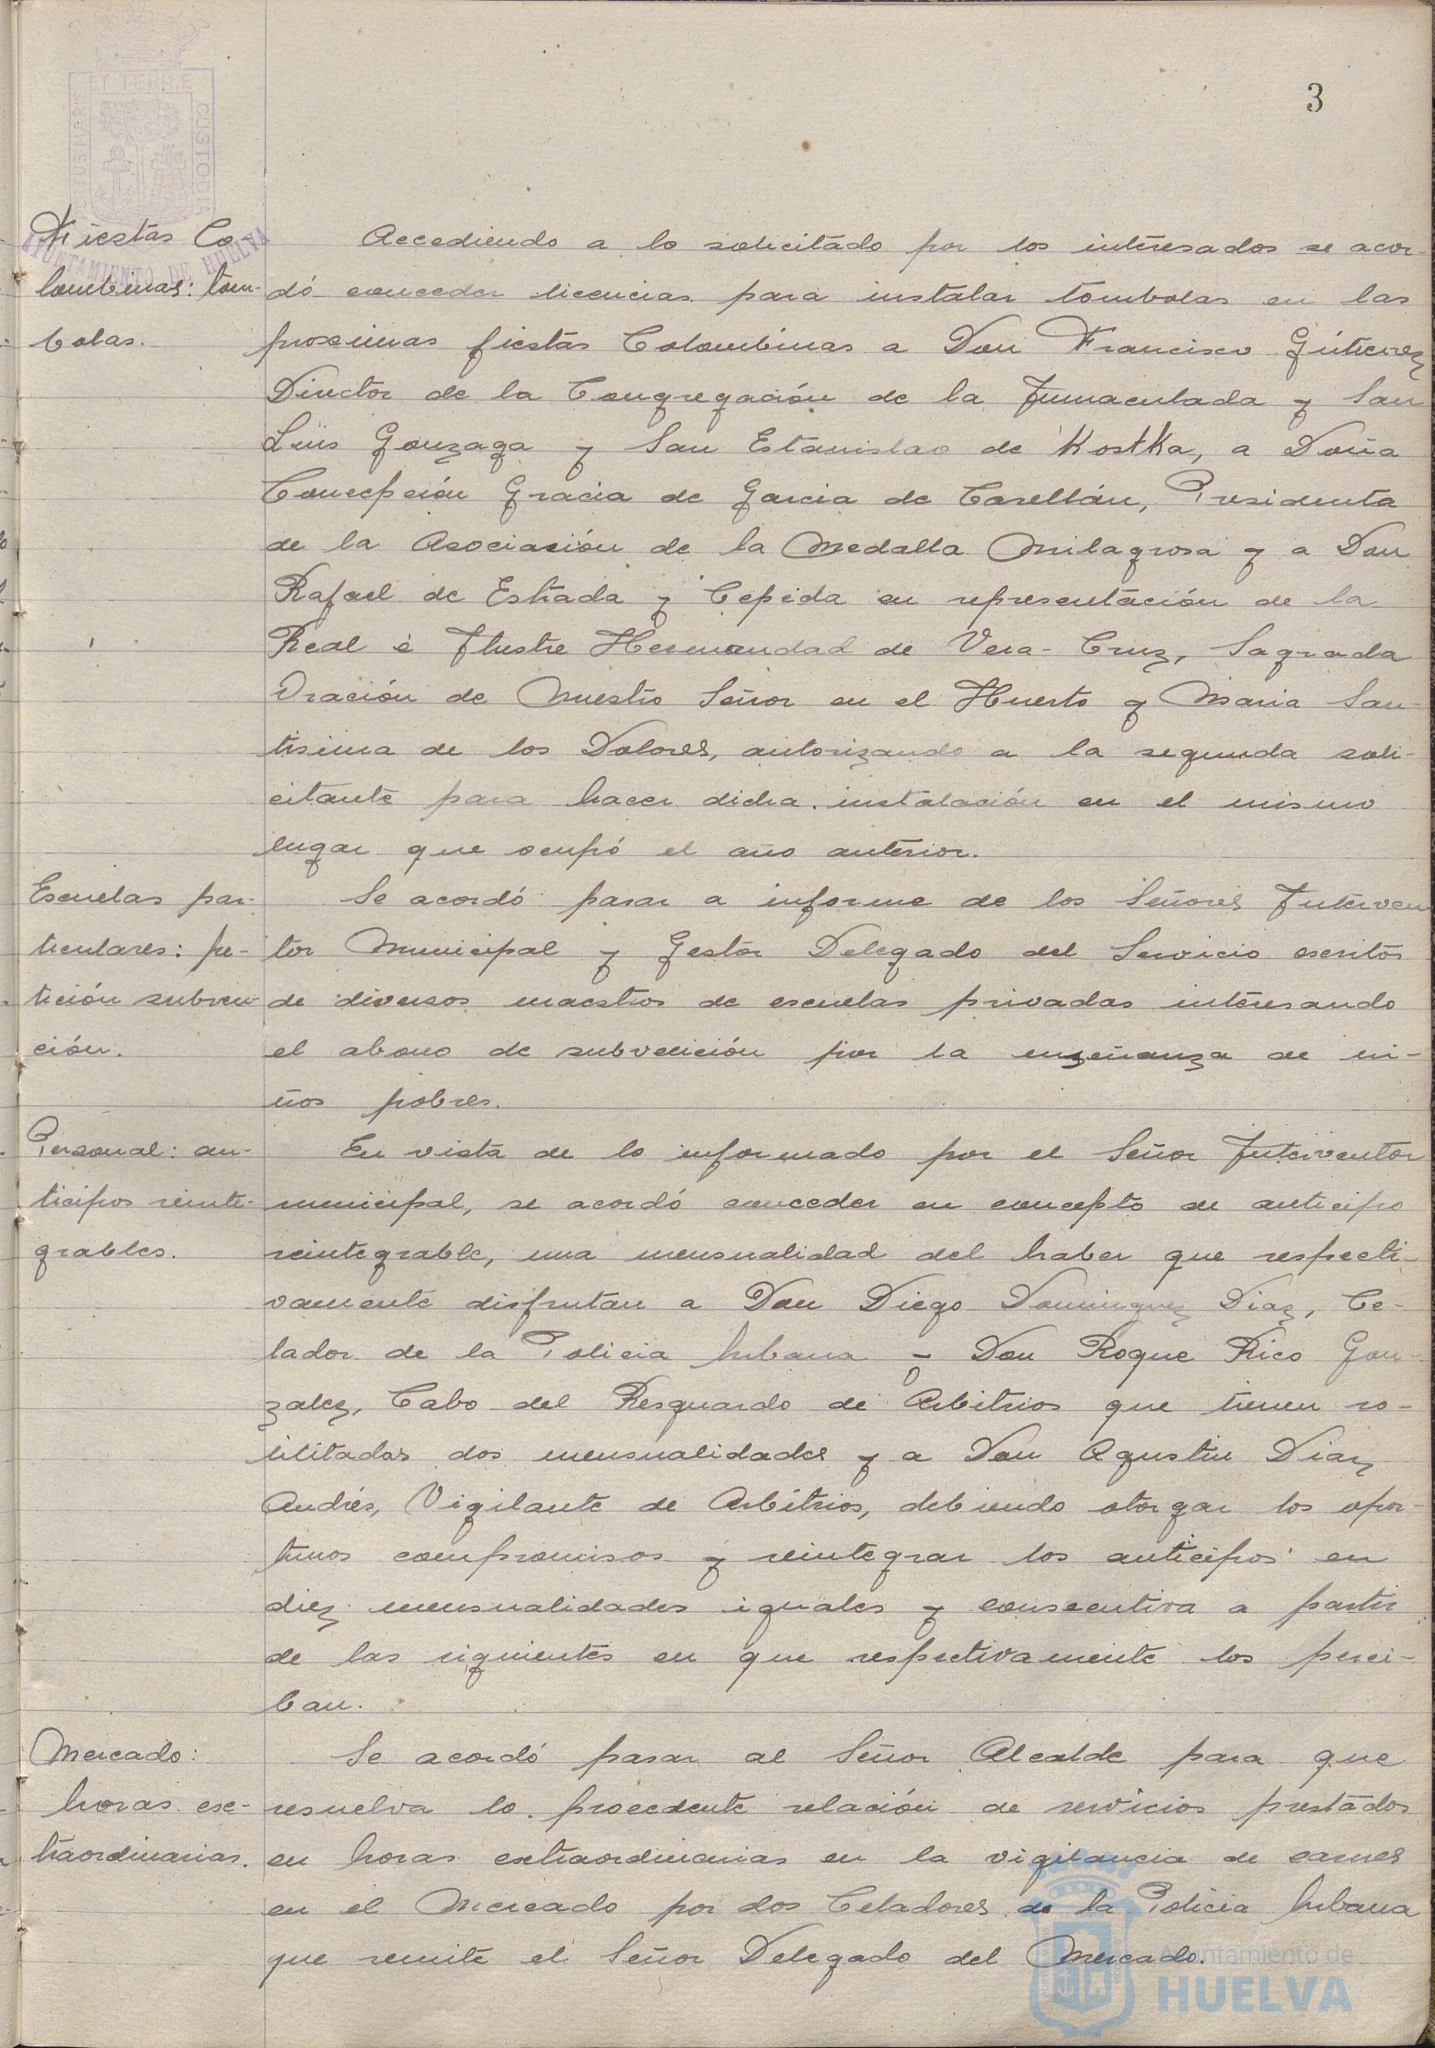 3
ET TERRE
CUSTODIA
AYUNTAMIENTO DE HUELVA
Fiestas Co
lombinas: tom-
bolas.
Accediendo a lo solicitado por los interesados se acor-
dó conceder licencias para instalar tombolas en las
proximas fiestas Colombinas a Don Francisco Gutierrez
Director de la Congregación de la Inmaculada y San
Luis Gonzaga y San Estanislao de Kostka, a Doña
Concepción Gracia de Garcia de Castellán, Presidenta
de la Asociación de la Medalla Milagrosa y a Don
Rafael de Estrada y Cepeda en representación de la
Real é Ilustre Hermandad de Vera-Cruz, Sagrada
Oración de Nuestro Señor en el Huerto y Maria San-
tisima de los Dolores, autorizando a la segunda soli-
citante para hacer dicha instalación en el mismo
lugar que ocupó el año anterior.
Escuelas par-
ticulares: pe-
tición subven-
ción.
Se acordó pasar a informe de los Señores Interven
tor Municipal y Gestor Delegado del Servicio escritos
de diversos maestros de escuelas privadas interesando
el abono de subvención por la enseñanza de ni-
ños pobres.
Personal: an-
ticipos reinte-
grables.
En vista de lo informado por el Señor Interventor
municipal, se acordó conceder en concepto de anticipo
reintegrable, una mensualidad del haber que respecti-
vamente disfrutan a Don Diego Dominguez Diaz, Ce-
lador de la Policia Urbana y Don Roque Rico Gon-
zalez, Cabo del Resguardo de Arbitrios que tienen so-
licitadas dos mensualidades y a Don Agustin Diaz
Andrés, Vigilante de Arbitrios, debiendo otorgar los opor-
tunos compromisos y reintegrar los anticipos en
diez mensualidades iguales y consecutiva a partir
de las siguientes en que respectivamente los perci-
ban.
Mercado:
horas ex-
traordinarias.
Se acordó pasar al Señor Alcalde para que
resuelva lo procedente relación de servicios prestados
en horas extraordinarias en la vigilancia de carnes
en el Mercado por dos Celadores de la Policia Urbana
que remite el Señor Delegado del Mercado.
Ayuntamiento de
HUELVA